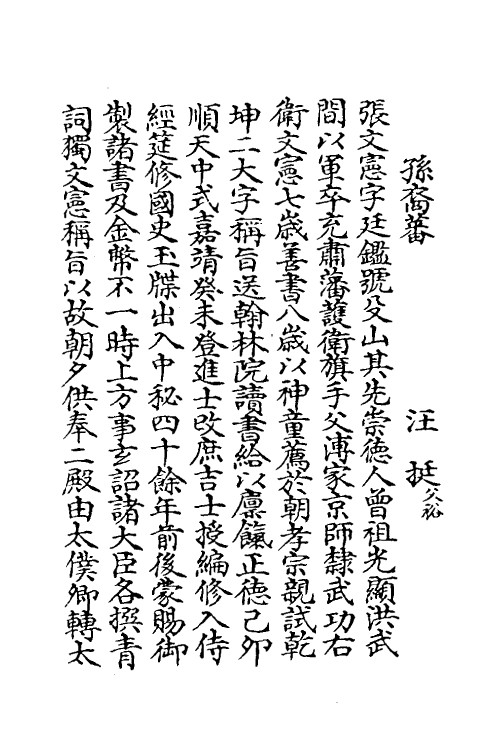 孫裔蕃
汪挺父裕
張文憲字廷鑑號殳山其先崇德人曾祖光顯洪武
間以軍卒充肅藩護衛旗手父溥家京師隸武功右
衛文憲七歲善書八歲以神童薦於朝孝宗親試乾
坤二大字稱旨送翰林院讀書給以廩餼正德己卯
順天中式嘉靖癸未登進士改庶吉士授編修入侍
經筵修國史玉牒出入中秘四十餘年前後蒙賜御
製諸書及金幣不一時上方事玄詔諸大臣各撰青
詞獨文憲稱旨以故朝夕供奉二殿由太僕卿轉太